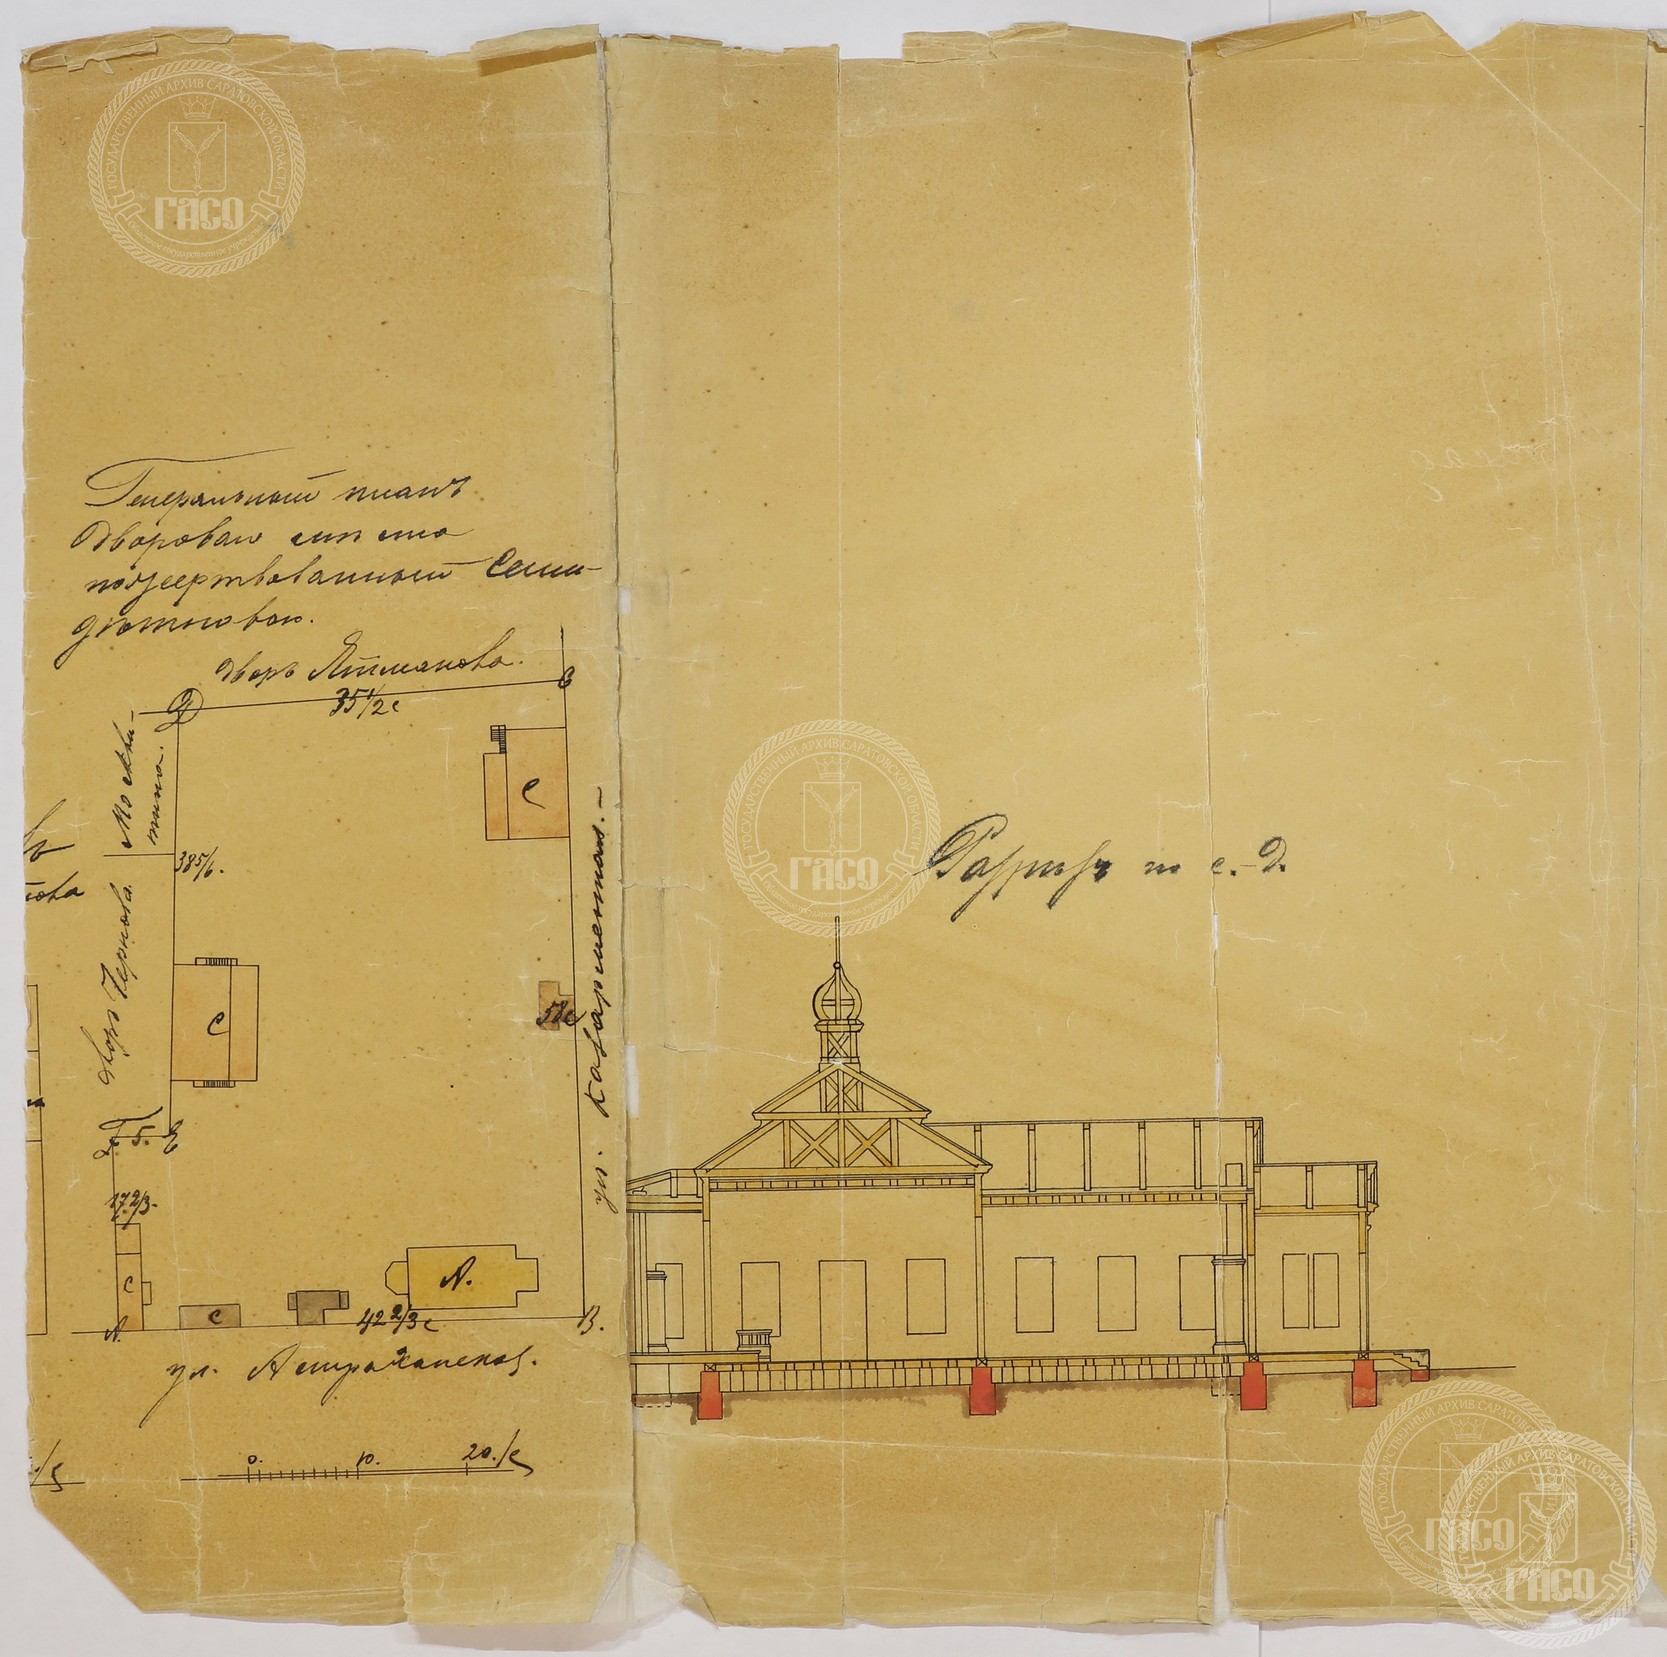 Генеральный планъ
дворовому мѣсту
пожертвованный Семи-
дѣтновой.
дворъ Ятманова.
Д
35 1/2 с
Е
дворъ Москви-
тина.
38 5/6.
дворъ Чернова.
С
С
58 с
ул. Казарменная.
5.
17 2/3.
С
С
А.
А.
42 2/3 с
В.
ул. Астраханская.
0. 10. 20./с
Разрѣзъ по с.-д.
ГОСУДАРСТВЕННЫЙ АРХИВ САРАТОВСКОЙ ОБЛАСТИ
ГАСО
ГОСУДАРСТВЕННЫЙ АРХИВ САРАТОВСКОЙ ОБЛАСТИ
ГАСО
ГОСУДАРСТВЕННЫЙ АРХИВ САРАТОВСКОЙ
ГАСО
ГОСУДАРСТВЕННЫЙ АРХИВ САРАТОВСКОЙ ОБЛАСТИ
ГАСО